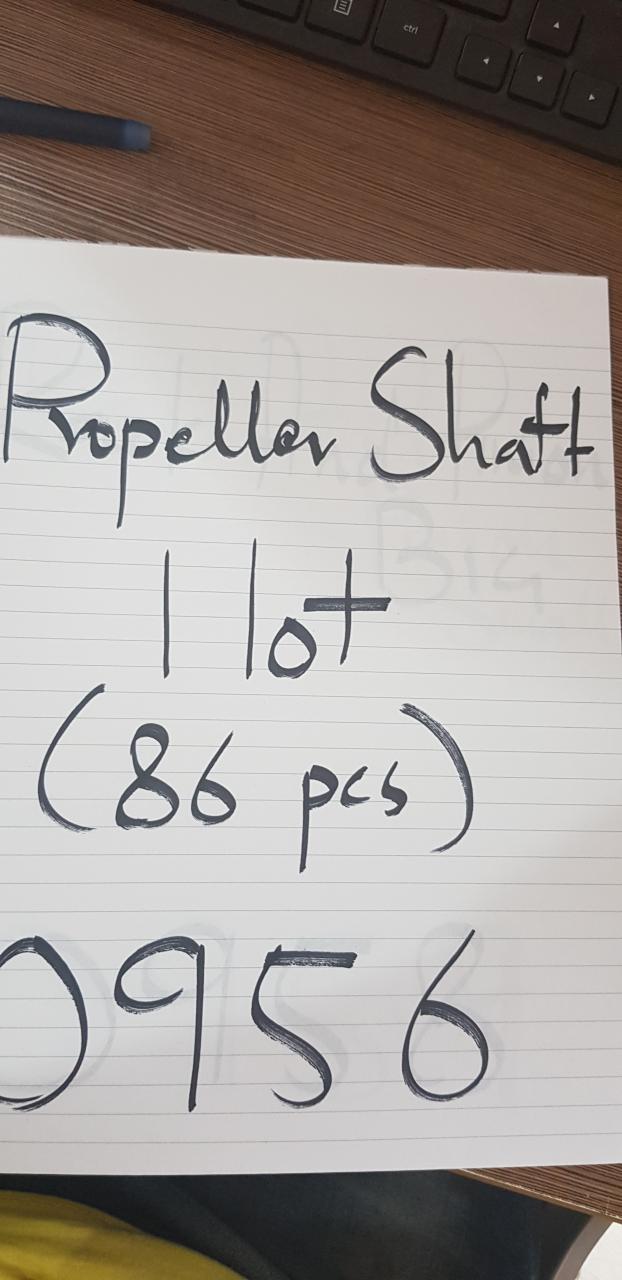 ctrl
Propeller Shaft
1 lot
(86 pcs)
0956